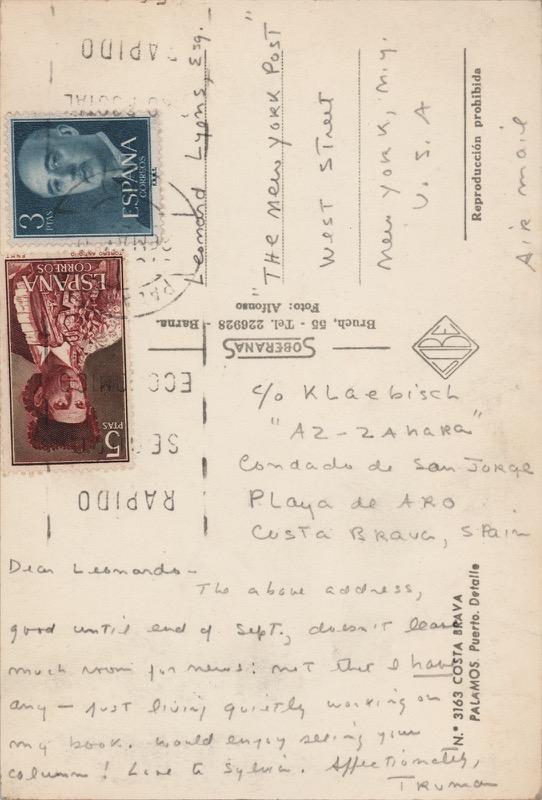 c/o Klaebisch
"AZ-ZAHARA"
Condado de San Jorge
Playa de ARO
Costa Brava, Spain
Dear Leonardo—
The above address,
good until end of Sept., doesn't leave
much room for news: not that I have
any — just living quietly working on
my book. Would enjoy seeing your
column! Love to Sylvia. Affectionately,
Truman
Leonard Lyons, Esq.
"THE New York Post"
West Street
New York, N.Y.
U.S.A
Air mail
Reproducción prohibida
Bruch, 55 - Tel. 226928 - Barna.
Foto: Alfonso
SOBERANAS
N.° 3163 COSTA BRAVA
PALAMOS. Puerto. Detalle
3 PTAS
ESPAÑA
CORREOS
ESPAÑA
CORREOS
5 PTAS
RAPIDO
ECONOMICO
RAPIDO